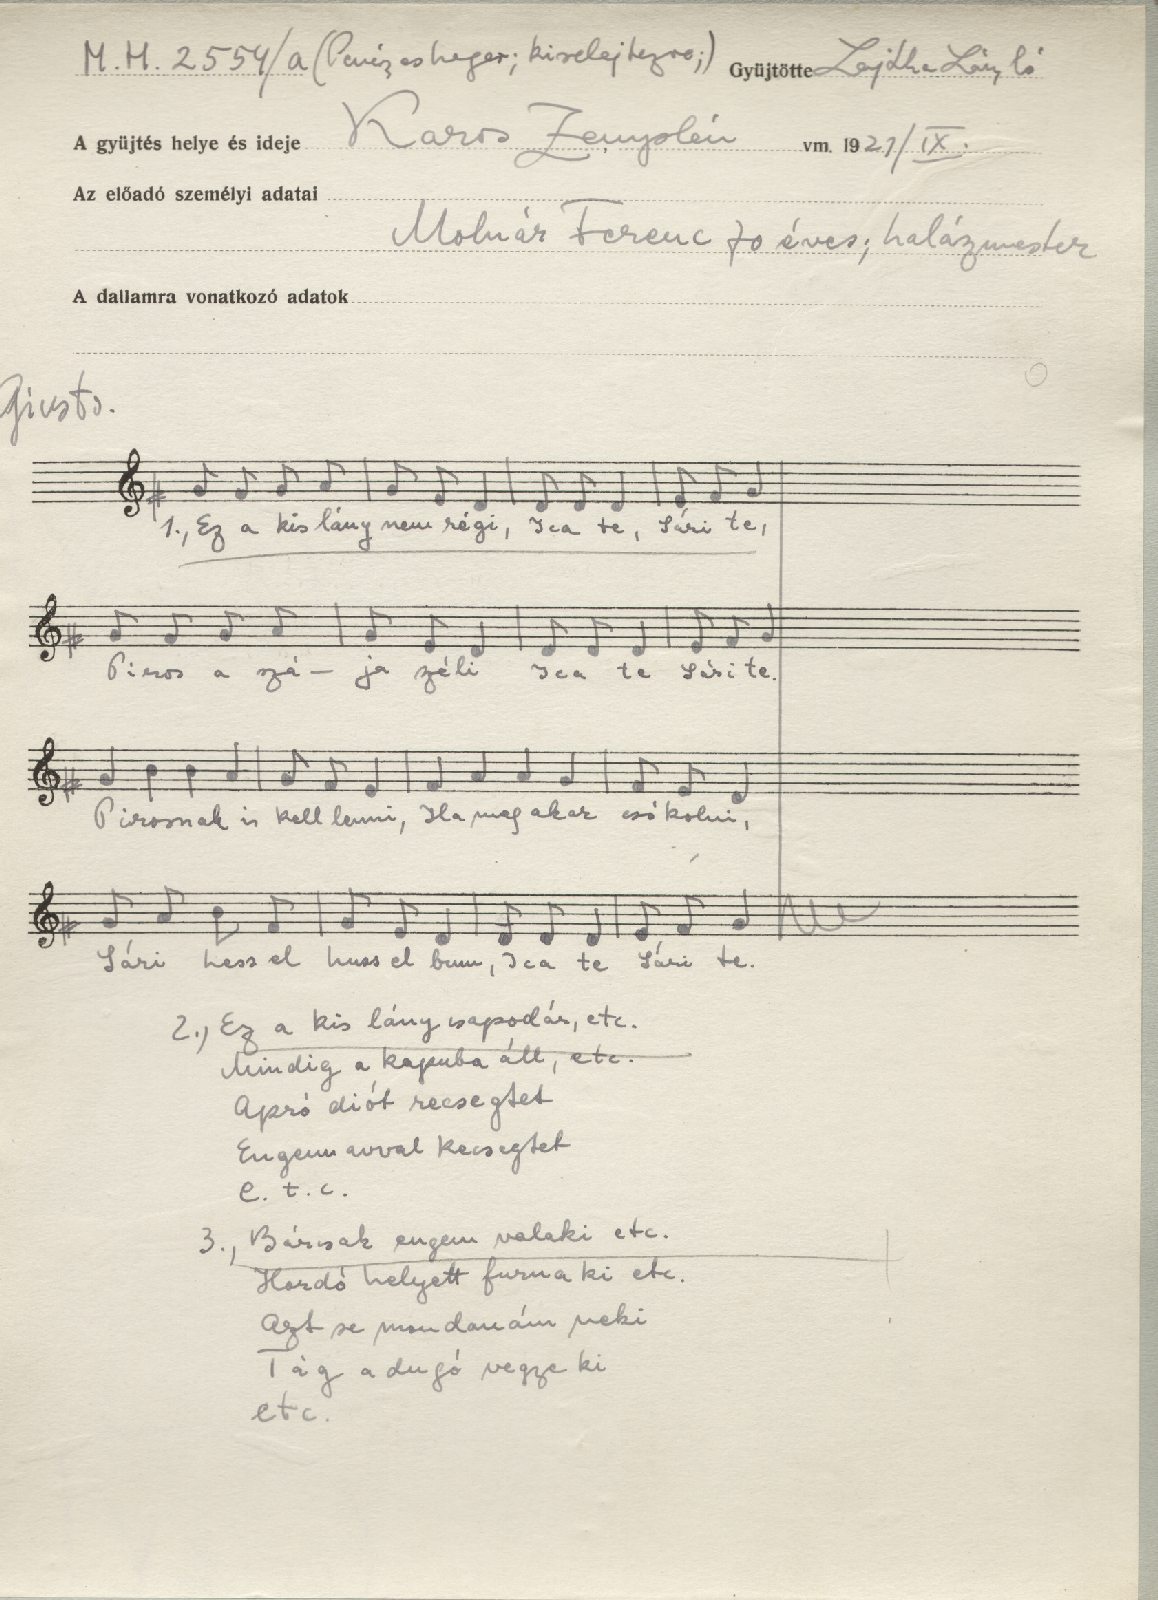 M.H. 2554/a (Penészes henger; kiselejtezve;) Gyüjtötte Lajtha László
A gyüjtés helye és ideje Karos Zemplén vm. 1921/IX.
Az előadó személyi adatai
Molnár Ferenc 70 éves; halázmester
A dallamra vonatkozó adatok
Giusto.
1., Ez a kis lány nem régi, Ica te, Sári te,
Piros a szá- ja széli Ica te Sári te.
Pirosnak is kell lenni, Ha meg akar csókolni,
Sári hess el huss el bum, Ica te Sári te.
2., Ez a kis lány csapodár, etc.
Mindig a kapuba áll, etc.
Apró diót recsegtet
Engem avval kecsegtet
e. t. c.
3., Bárcsak engem valaki etc.
Hordó helyett furna ki etc.
Azt se mondanám neki
Tág a dugó vegye ki
etc.